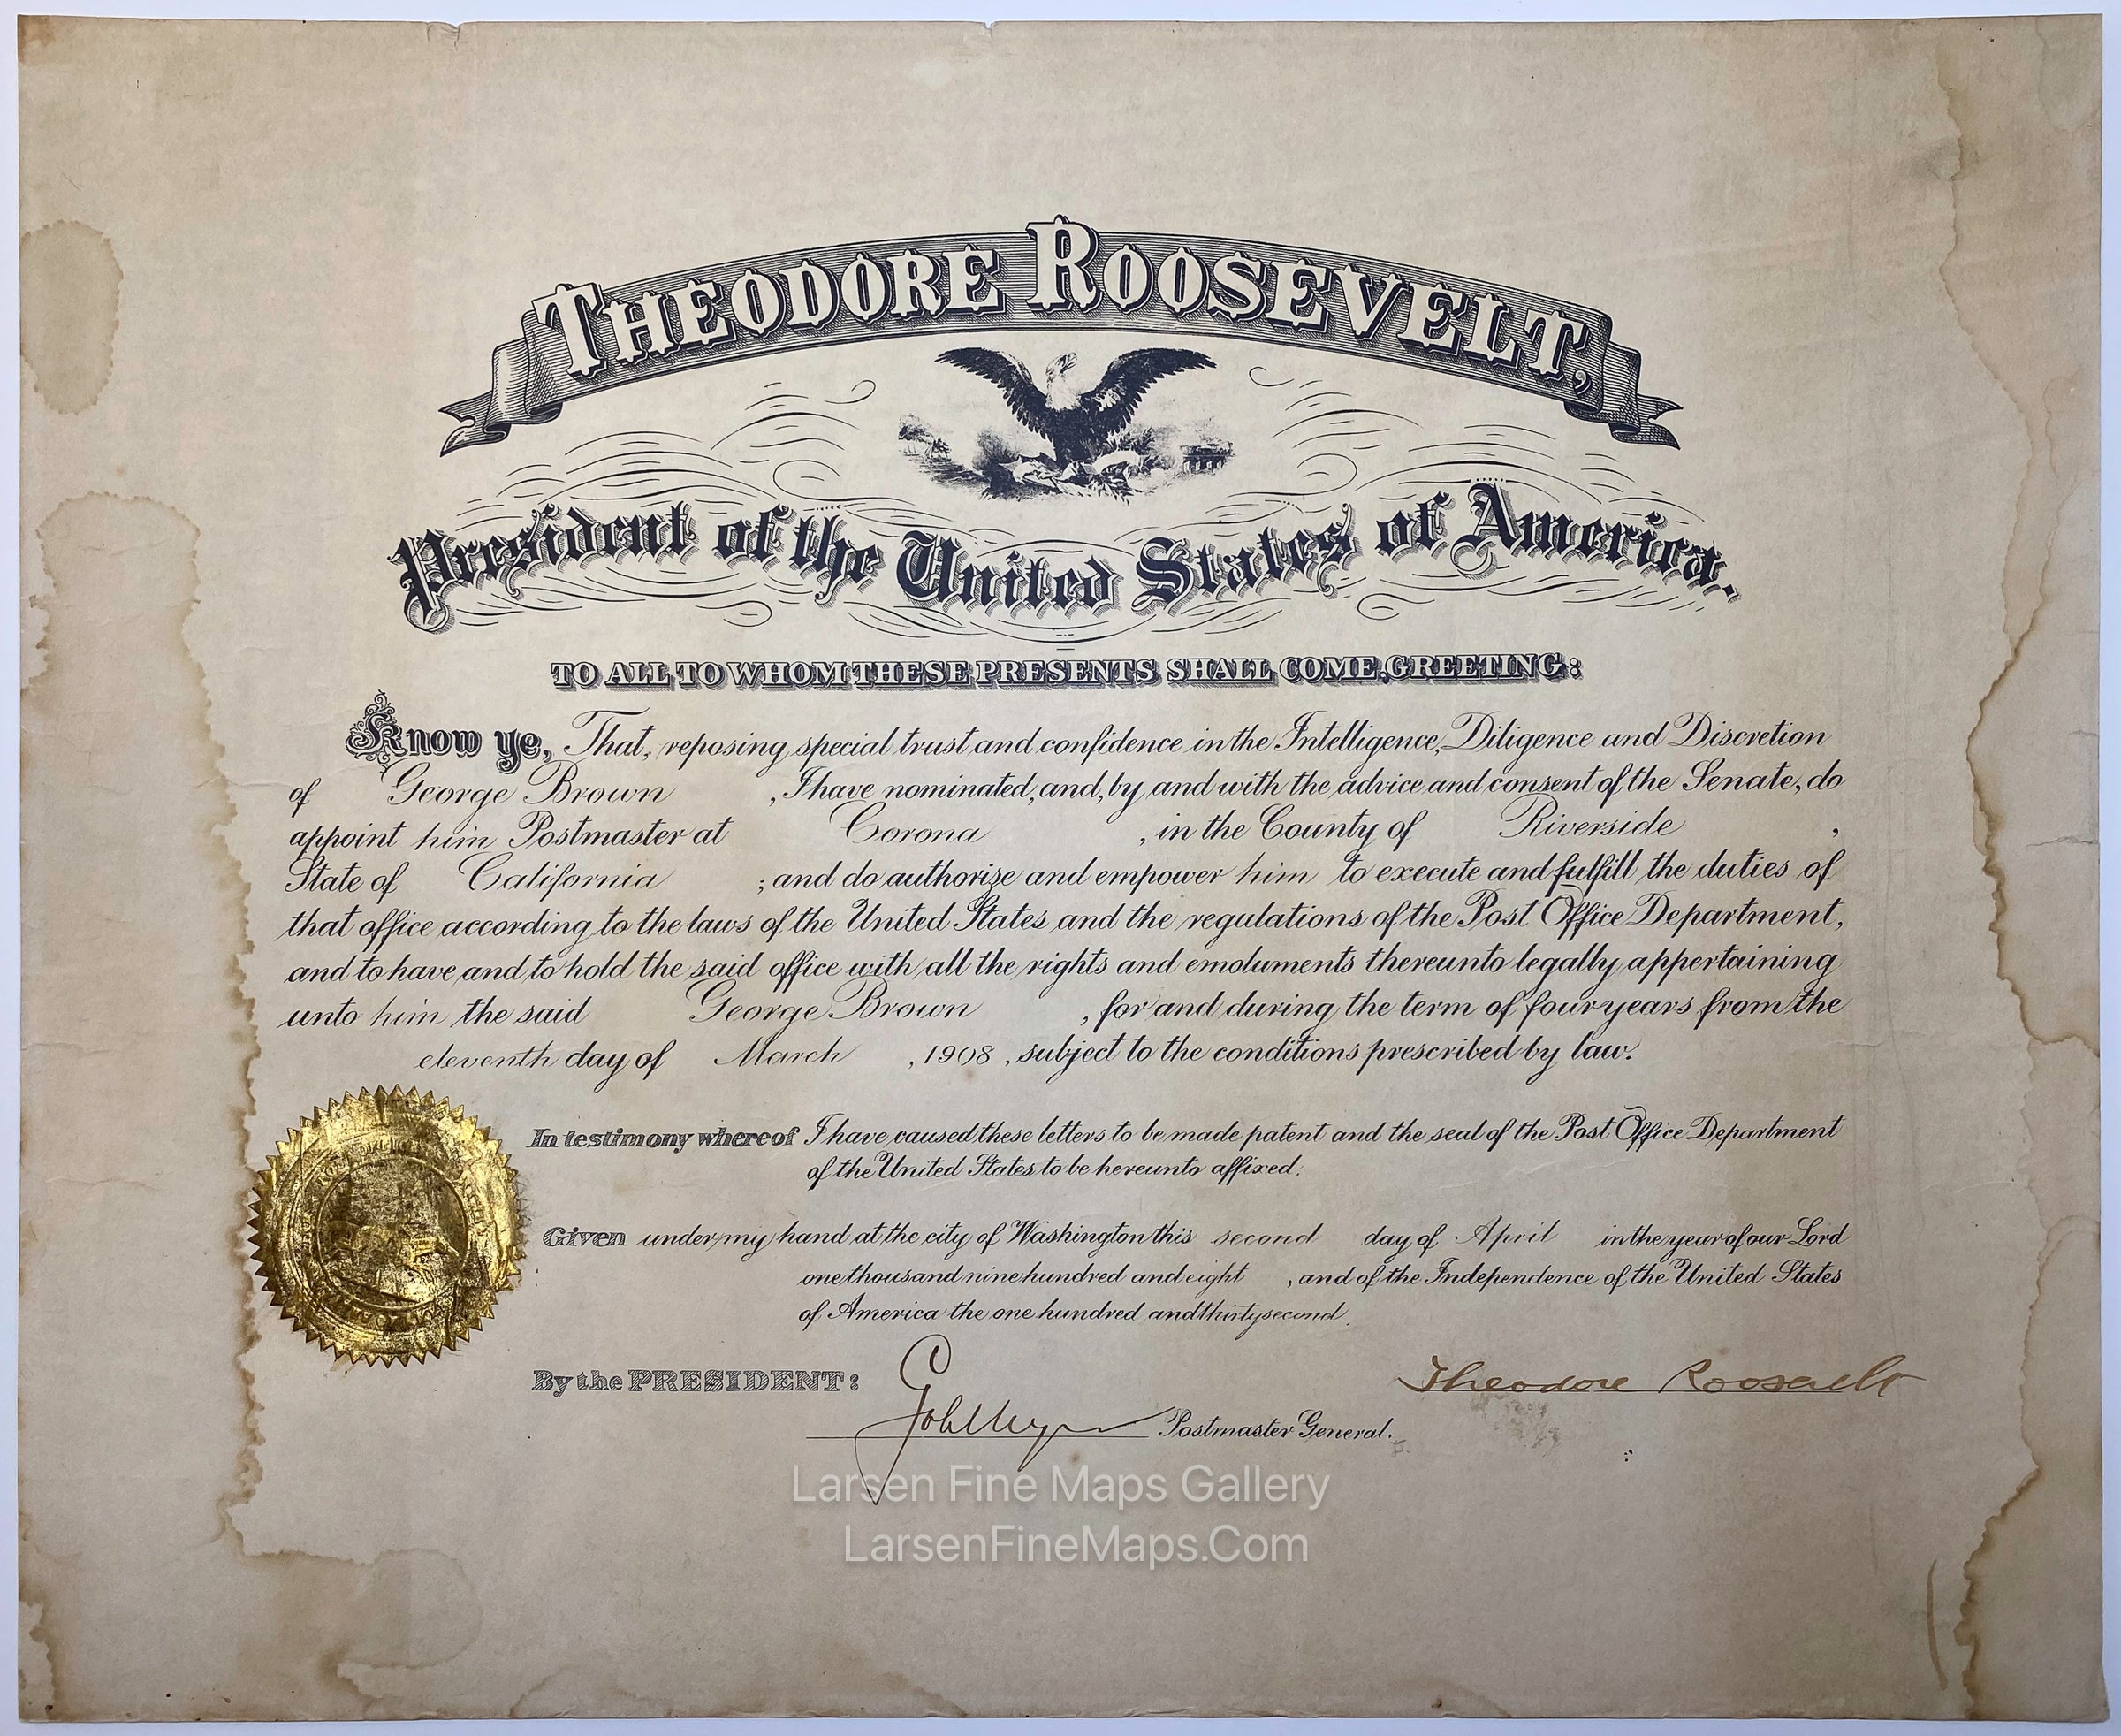 THEODORE ROOSEVELT,
President of the United States of America.
TO ALL TO WHOM THESE PRESENTS SHALL COME, GREETING:
Know ye, That, reposing special trust and confidence in the Intelligence, Diligence and Discretion
of George Brown, I have nominated, and, by and with the advice and consent of the Senate, do
appoint him Postmaster at Corona, in the County of Riverside,
State of California; and do authorize and empower him to execute and fulfill the duties of
that office according to the laws of the United States and the regulations of the Post Office Department,
and to have and to hold the said office with all the rights and emoluments thereunto legally appertaining
unto him the said George Brown, for and during the term of four years from the
eleventh day of March, 1908, subject to the conditions prescribed by law.
In testimony whereof I have caused these letters to be made patent and the seal of the Post Office Department
of the United States to be hereunto affixed.
Given under my hand at the city of Washington this second day of April in the year of our Lord
one thousand nine hundred and eight, and of the Independence of the United States
of America the one hundred and thirty second.
By the PRESIDENT:
Theodore Roosevelt
Postmaster General.
Larsen Fine Maps Gallery
LarsenFineMaps.Com